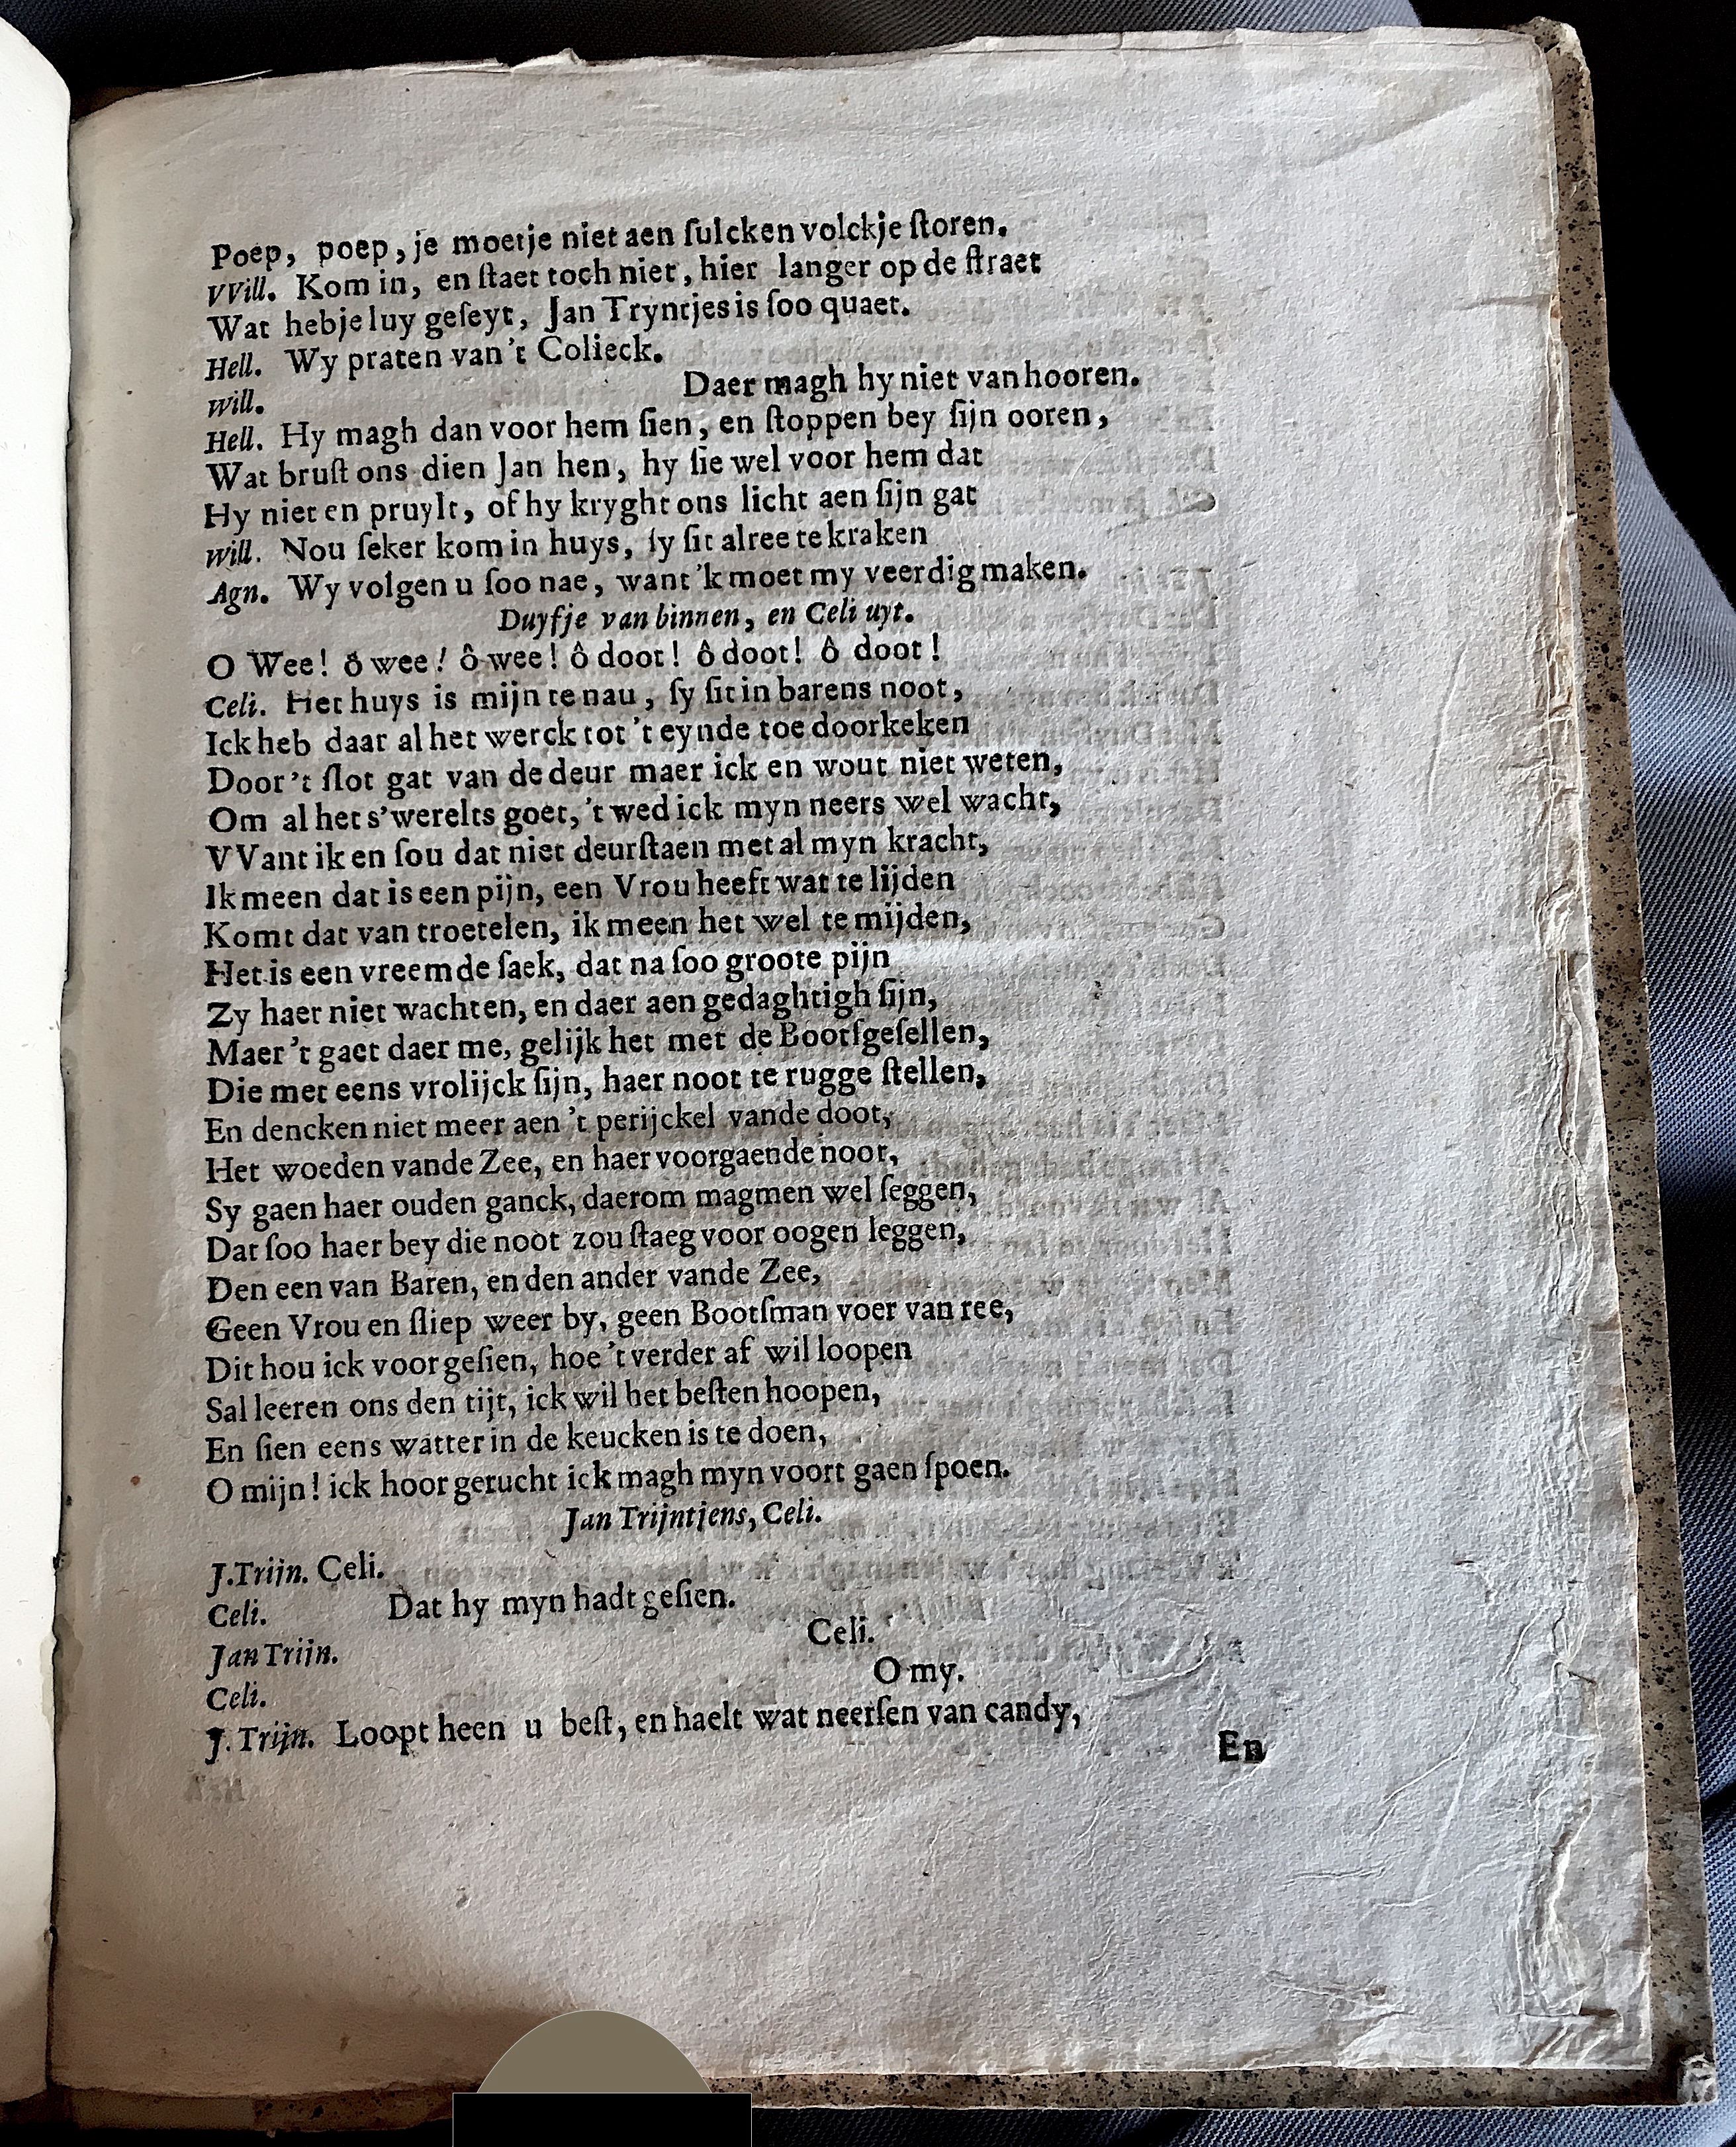 Poep, poep, je moetje niet aen ſulcken volckje ſtoren.
VVill. Kom in, en ſtaet toch niet, hier langer op de ſtraet
Wat hebje luy geſeyt, Jan Tryntjes is ſoo quaet.
Hell. Wy praten van 't Colieck.
Will. Daer magh hy niet van hooren.
Hell. Hy magh dan voor hem ſien, en ſtoppen bey ſijn ooren,
Wat bruſt ons dien Jan hen, hy ſie wel voor hem dat
Hy niet en pruylt, of hy kryght ons licht aen ſijn gat
Will. Nou ſeker kom in huys, ſy ſit alree te kraken
Agn. Wy volgen u ſoo nae, want 'k moet my veerdig maken.
Duyfje van binnen, en Celi uyt.
O Wee! ô wee! ô wee! ô doot! ô doot! ô doot!
Celi. Het huys is mijn te nau, ſy ſit in barens noot,
Ick heb daar al het werck tot 't eynde toe doorkeken
Door 't ſlot gat van de deur maer ick en wout niet weten,
Om al het s'werelts goet, 't wed ick myn neers wel wacht,
VVant ik en ſou dat niet deurſtaen met al myn kracht,
Ik meen dat is een pijn, een Vrou heeft wat te lijden
Komt dat van troetelen, ik meen het wel te mijden,
Het is een vreemde ſaek, dat na ſoo groote pijn
Zy haer niet wachten, en daer aen gedaghtigh ſijn,
Maer 't gaet daer me, gelijk het met de Bootſgeſellen,
Die met eens vrolijck ſijn, haer noot te rugge ſtellen,
En dencken niet meer aen 't perijckel vande doot,
Het woeden vande Zee, en haer voorgaende noot,
Sy gaen haer ouden ganck, daerom magmen wel ſeggen,
Dat ſoo haer bey die noot zou ſtaeg voor oogen leggen,
Den een van Baren, en den ander vande Zee,
Geen Vrou en ſliep weer by, geen Bootſman voer van ree,
Dit hou ick voor geſien, hoe 't verder af wil loopen
Sal leeren ons den tijt, ick wil het beſten hoopen,
En ſien eens watter in de keucken is te doen,
O mijn! ick hoor gerucht ick magh myn voort gaen ſpoen.
Jan Trijntjens, Celi.
J. Trijn. Celi.
Celi. Dat hy myn hadt geſien.
Jan Trijn. Celi.
Celi. O my.
J. Trijn. Loopt heen u beſt, en haelt wat neerſen van candy,
En